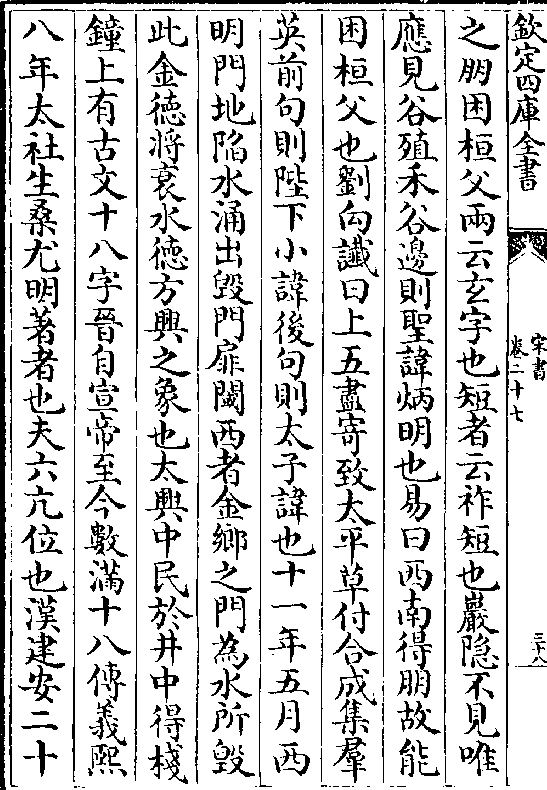 欽定四庫全書
宋書
卷二十七
三十八
之朋困桓父兩云玄字也短者云祚短也巖隐不見唯
應見谷殖禾谷邊則聖諱炳明也易曰西南得朋故能
困桓父也劉向讖曰上五盡寄致太平草付合成集羣
英前句則陛下小諱後句則太子諱也十一年五月西
明門地陷水涌出毁門扉閾西者金鄉之門為水所毁
此金德將衰水德方興之象也太興中民於井中得棧
鐘上有古文十八字晉自宣帝至今數滿十八傳義熙
八年太社生桑尤明著者也夫六亢位也漢建安二十